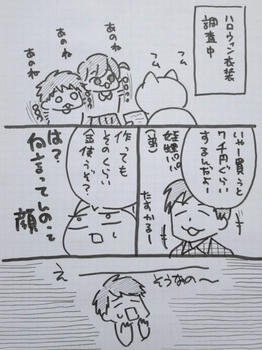 ハロウィン衣装
調査中
フムフム
あのね
あのね
あのね
いやー買うと
7千円ぐらい
するんだよ
妊婦パパ
(弟)
たすかるー
作っても
そのくらい
金使うぞ?
は?
何言ってしのって
顔
そうなの〜
え